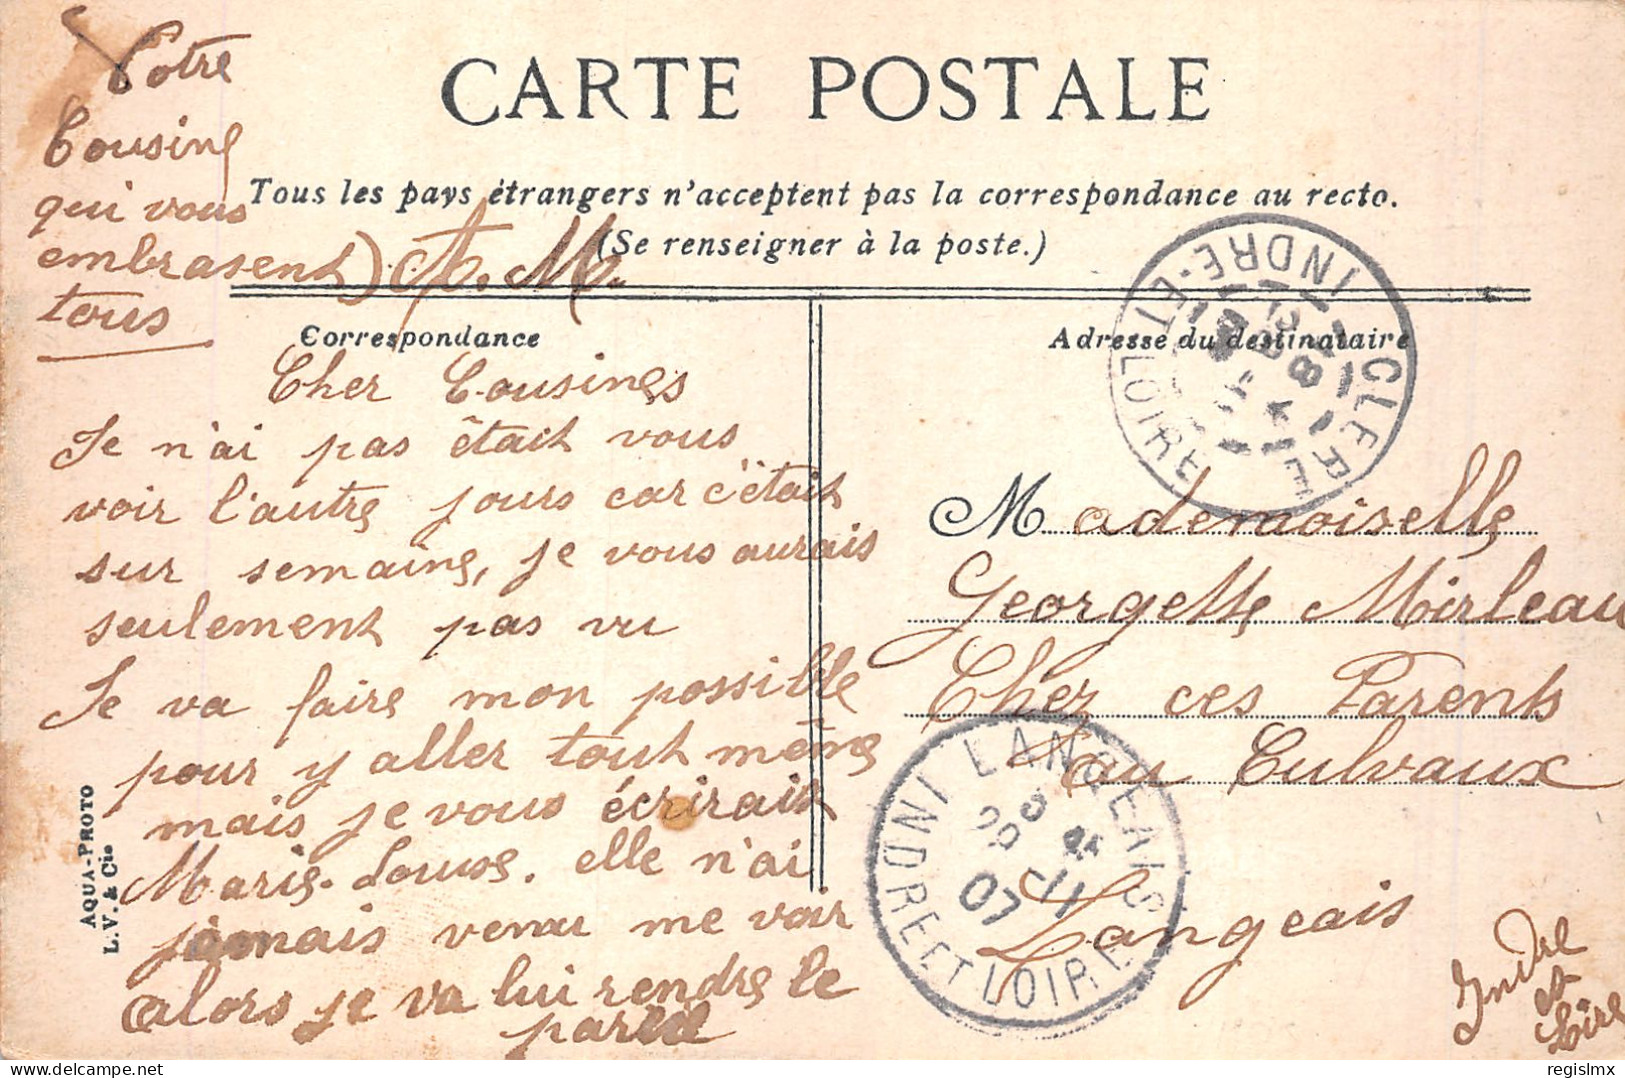 CARTE POSTALE
Tous les pays étrangers n'acceptent pas la correspondance au recto.
(Se renseigner à la poste.)
Correspondance
Cher Cousines
Je n'ai pas êtait vous
voir l'autre jours car c'ëtait
sur semaine, je vous aurais
seulement pas vu
Je va faire mon possible
pour y aller tout même
mais je vous écrirait
Marie-Louise. elle n'ai
jamais venu me voir
alors je va lui rendre le
pareil
Votre
Cousine
qui vous
embrasent
tous
A. M.
Adresse du destinataire
Mademoiselle
Georgette Mirleau
Chez ces Parents
au Culvaux
Langeais
Indre
et
Loire
CLERE
INDRE-ET-LOIRE
LANGEAIS
INDRE ET LOIRE
07
AQUA-PHOTO
L.V. & Cie
regislmx